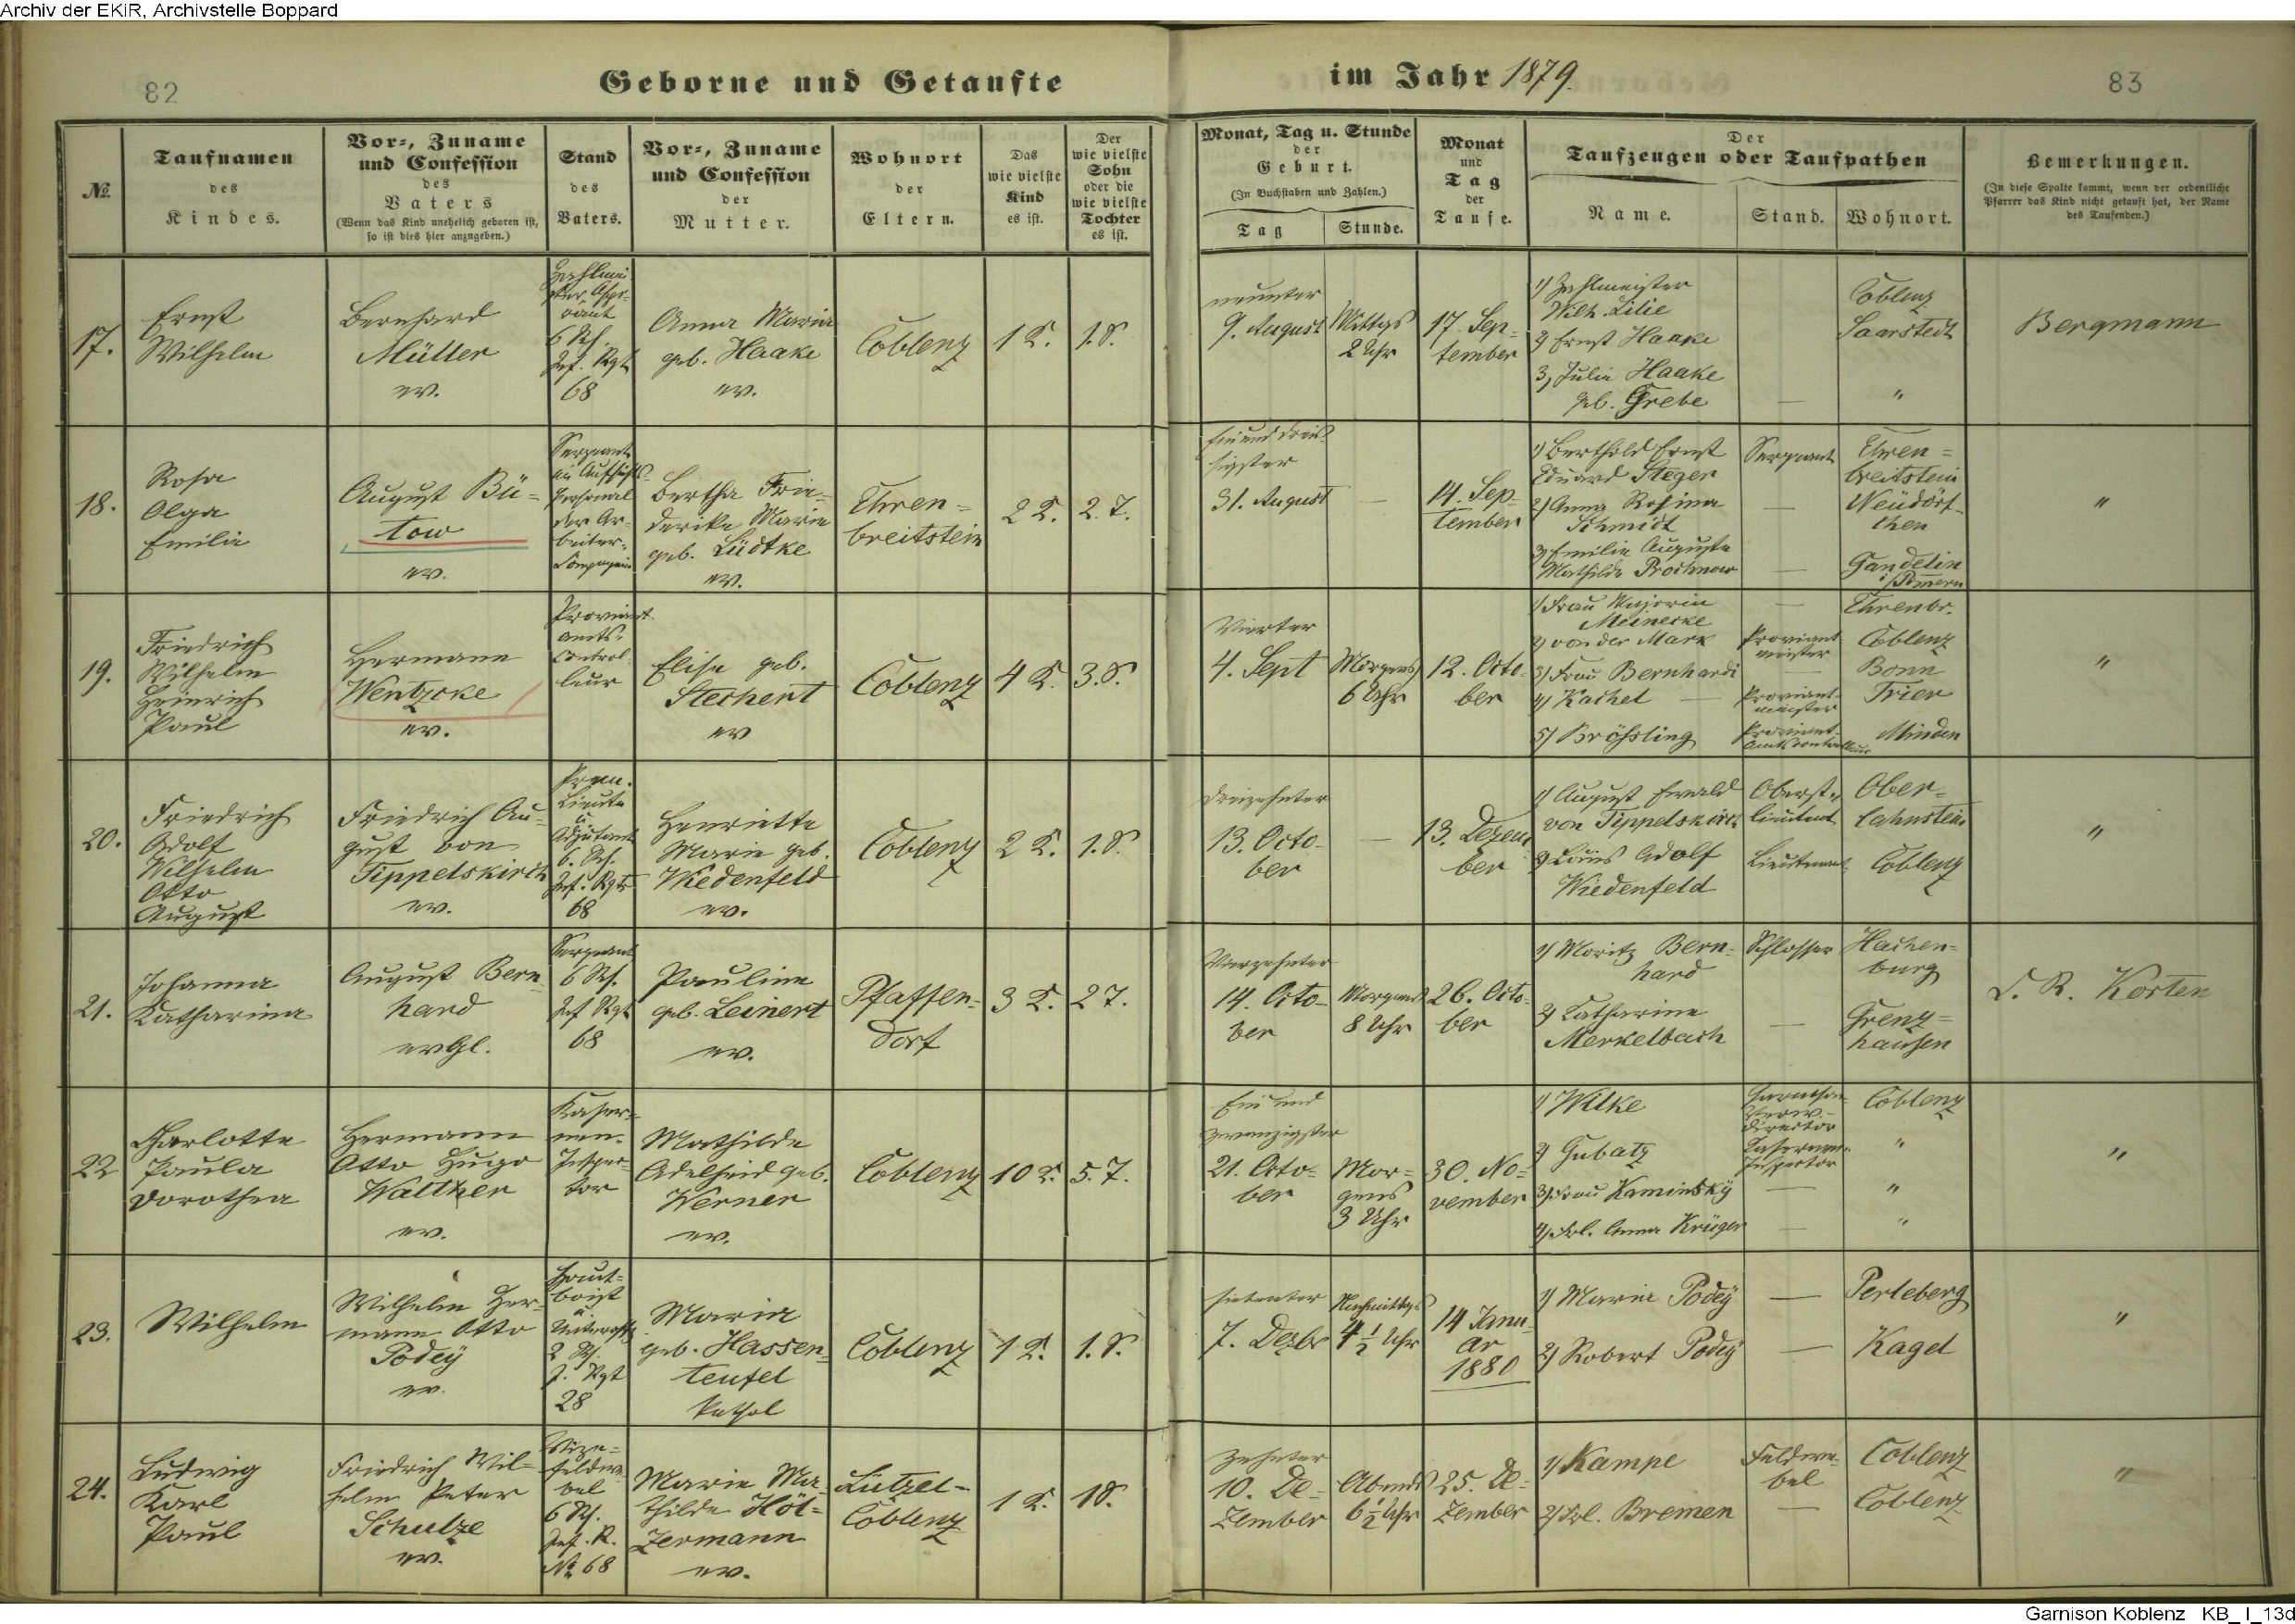 Archiv der EKiR, Archivstelle Boppard
82
Geborne und Getaufte
im Jahr 1879.
83
№
Taufnamen
des
Kindes.
Vor-, Zuname
und Confession
des
Vaters
(Wenn das Kind unehelich geboren ist,
so ist dies hier anzugeben.)
Stand
des
Vaters.
Vor-, Zuname
und Confession
der
Mutter.
Wohnort
der
Eltern.
Das
wie vielste
Kind
es ist.
Der
wie vielste
Sohn
oder die
wie vielste
Tochter
es ist.
Monat, Tag u. Stunde
der
Geburt.
(In Buchstaben und Zahlen.)
Tag
Stunde.
Monat
und
Tag
der
Taufe.
Der
Taufzeugen oder Taufpathen
Name.
Stand.
Wohnort.
Bemerkungen.
(In diese Spalte kommt, wenn der ordentliche
Pfarrer das Kind nicht getauft hat, der Name
des Taufenden.)
17.
Ernst
Wilhelm
Bernhard
Müller
ev.
Zahlmei-
ster-Aspi-
rant
6 Rh.
Inf. Rgt
68
Anna Maria
geb. Haake
ev.
Coblenz
1 K.
1. S.
neunter
9. August
Mittgs
2 Uhr
17. Sep-
tember
1) Zahlmeister
Wilh. Lilie
2) Ernst Haake
3) Julie Haake
geb. Grebe
—
Coblenz
Saarstedt
"
Bergmann
18.
Rosa
Olga
Emilie
August Bü-
tow
ev.
Sergeant
im Aufsichts-
personal
der Ar-
beiter-
Compagnie
Bertha Frie-
derike Marie
geb. Lüdtke
ev.
Ehren-
breitstein
2 K.
2. T.
Ein und dreis-
sigster
31. August
—
14. Sep-
tember
1) Berthold Ernst
Eduard Steger
2) Anna Rosina
Schmidt
3) Emilie Auguste
Mathilde Prochnow
Sergeant
—
—
Ehren-
breitstein
Neudörf-
chen
Gandelin
i/Pommern
"
19.
Friedrich
Wilhelm
Heinrich
Paul
Hermann
Wentzcke
ev.
Proviant
amts-
Control-
leur
Elise geb.
Stechert
ev
Coblenz
4 K.
3. S.
Vierter
4. Sept
Morgens
6 Uhr
12. Octo-
ber
1) Frau Majorin
Meinecke
2) von der Mark
3) Frau Bernhardi
4) Kachel
5) Brössling
—
Proviant
meister
—
Proviant-
meister
Proviant-
Amtscontrolleur
Ehrenbr.
Coblenz
Bonn
Trier
Minden
"
20.
Friedrich
Adolf
Wilhelm
Otto
August
Friedrich Au-
gust von
Tippelskirch
ev.
Prem.
Lieute
u
Adjutant
6. Rh.
Inf. Rgts
68
Henriette
Marie geb.
Wiedenfeld
ev.
Coblenz
2 K.
1. S.
dreizehnter
13. Octo-
ber
—
13. Dezem
ber
1) August Ewald
von Tippelskirch
2) Louis Adolf
Wiedenfeld
Oberst-
lieutent
Lieutenant
Ober-
lahnstein
Coblenz
"
21.
Johanna
Katharina
August Bern
hard
evgl.
Sergeant
6 Rh.
Inf Rgt
68
Pauline
geb. Leinert
ev.
Pfaffen-
dorf
3 K.
2 T.
Vierzehnter
14. Octo-
ber
Morgens
8 Uhr
26. Octo-
ber
1) Moritz Bern-
hard
2) Catharine
Merkelbach
Schlosser
—
Hachen-
burg
Grenz-
hausen
L. R. Korten
22
Charlotte
Paula
Dorothea
Hermann
Otto Hugo
Walther
ev.
Kaser-
nen-
Inspec-
tor
Mathilde
Adelheid geb.
Werner
ev.
Coblenz
10 K.
5. T.
Ein und
zwanzigster
21. Octo-
ber
Mor-
gens
3 Uhr
30. No-
vember
1) Wilke
2) Gubatz
3) Frau Kaminsky
4) Frl. Anna Krüger
Garnison
Verw.-
Director
Casernen-
Inspector
—
—
Coblenz
"
"
"
"
23.
Wilhelm
Wilhelm Her-
mann Otto
Podeÿ
ev.
Haut-
boist
u
Unteroffz
2 Rh.
J. Rgt
28
Maria
geb. Hassen-
teufel
kathol
Coblenz
1 K.
1. S.
siebenter
7. Dezbr
Nachmittgs
4 ½ Uhr
14 Janu-
ar
1880
1) Marie Podeÿ
2) Robert Podeÿ
—
—
Perleberg
Kagel
"
24.
Ludwig
Karl
Paul
Friedrich Wil-
helm Peter
Schulze
ev.
Vize-
feldwe-
bel
6 Rh.
Inf. R.
№ 68
Marie Ma-
thilde Höl-
zermann
ev.
Lützel-
Coblenz
1 K.
1 S.
Zehnter
10. De-
zember
Abends
6 ½ Uhr
25. De-
zember
1) Kampe
2) Frl. Bremen
Feldwe-
bel
—
Coblenz
Coblenz
"
Garnison Koblenz KB_I_13d